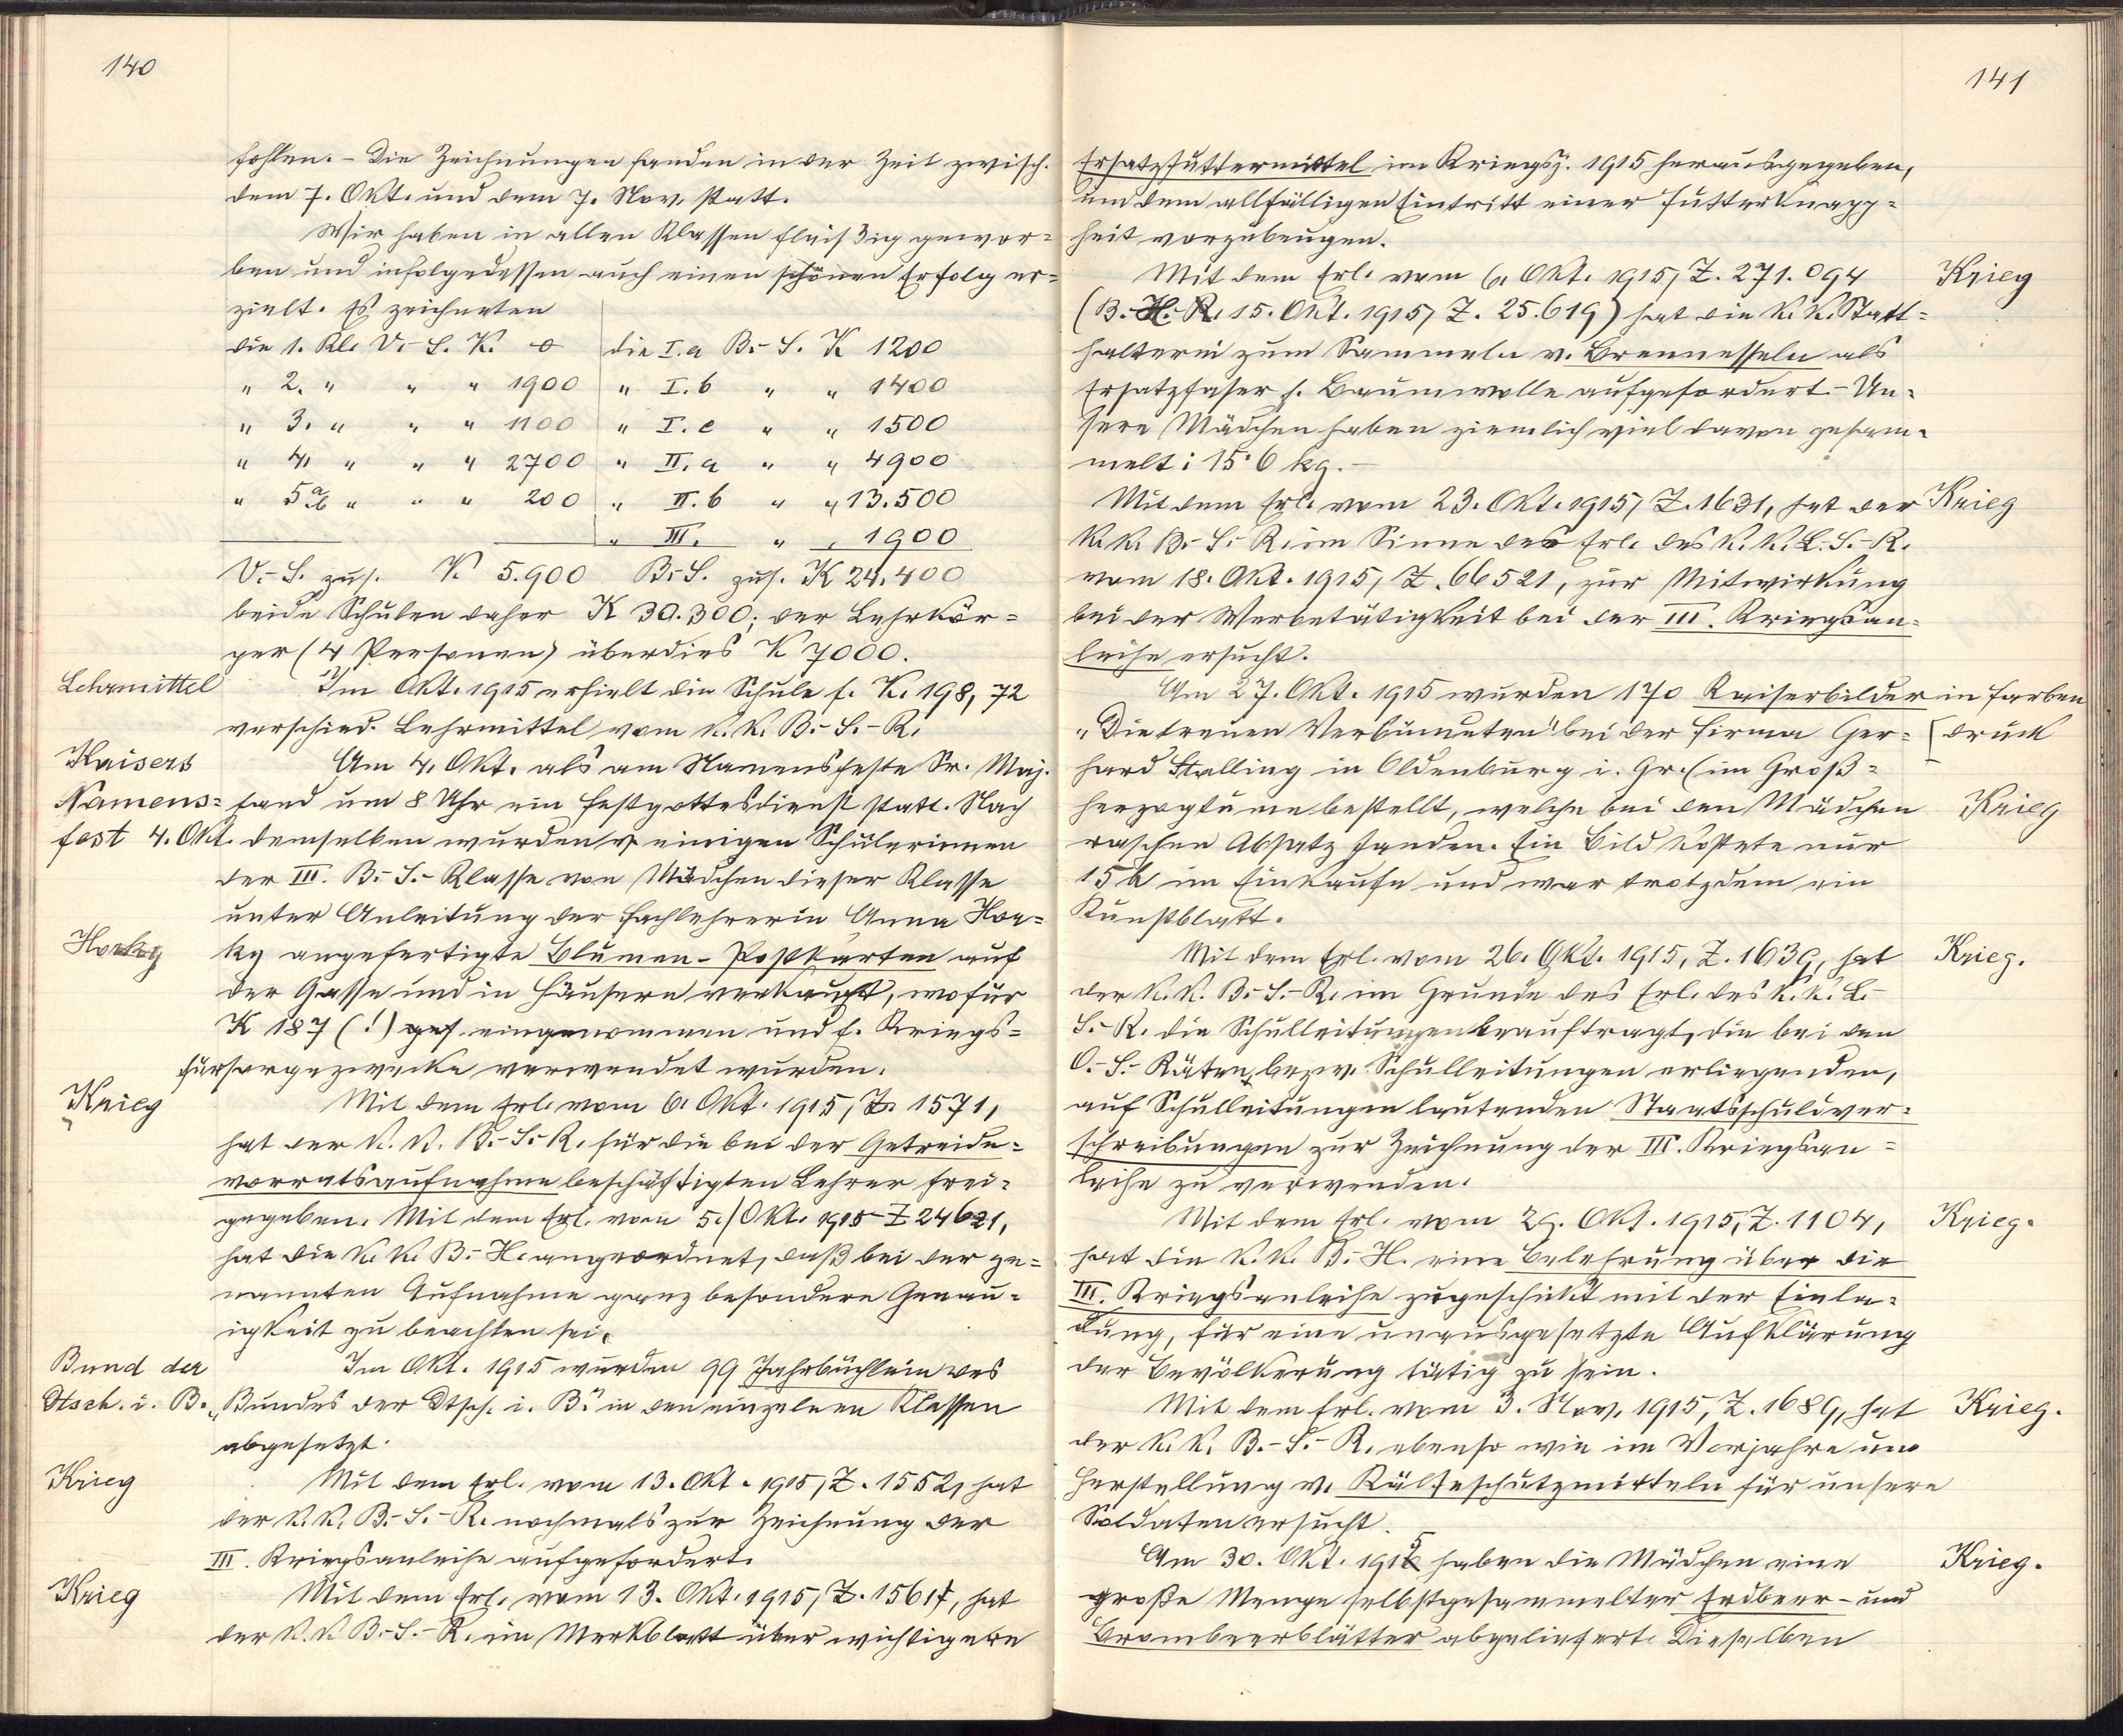 140
fohlen. – Die Zeichnungen fanden in der Zeit zwisch.
dem 7. Okt. und dem 7. Nov. statt.
Wir haben in allen Klassen fleißig gewor=
ben und infolgedessen auch einen schönen Erfolg er=
zielt. Es zeichneten
die 1. Kl. V.-S. K. 0 die I.a B.-S. K 1200
" 2. " " " 1900 " I.b " " 1400
" 3. " " " 1100 " I.c " " 1500
" 4. " " " 2700 " II.a " " 4900
" 5a/b " " " 200 " II.b " " 13.500
" III. " " 1900
V.-S. zus. K. 5.900 B.-S. zus. K 24.400
beide Schulen daher K 30.300; der Lehrkör=
per (4 Personen) überdies K 7000.
Lehrmittel
Im Okt. 1915 erhielt die Schule f. K. 198,72
verschied. Lehrmittel vom k. k. B.-S.-R.
Kaisers
Namens=
fest 4. Okt.
Am 4. Okt. als am Namensfeste Sr. Maj.
fand um 8 Uhr ein Festgottesdienst statt. Nach
demselben wurden v. einigen Schülerinnen
der III. B.-S.-Klasse von Mädchen dieser Klasse
unter Anleitung der Fachlehrerin Anna Hor=
Horky
ky angefertigte Blumen-Postkarten auf
der Gasse und in Häusern verkauft, wofür
K 187 (!) ges. eingenommen und f. Kriegs=
fürsorgezwecke verwendet wurden.
Krieg
Mit dem Erl. vom 6. Okt. 1915, Z. 1571,
hat der k. k. B.-S.-R. für die bei der Getreide=
vorratsaufnahme beschäftigten Lehrer frei=
gegeben. Mit dem Erl. vom 5./Okt. 1915 Z 24621,
hat die k. k. B.-H. angeordnet, daß bei der ge=
nannten Aufnahme ganz besondere Genau=
igkeit zu beachten sei.
Bund der
Dtsch. i. B.
Im Okt. 1915 wurden 99 Jahrbüchlein des
„Bundes der Dtsch. i. B." in den einzelnen Klassen
abgesetzt.
Krieg
Mit dem Erl. vom 13. Okt. 1915, Z. 1552, hat
der k. k. B.-S.-R. nochmals zur Zeichnung der
III. Kriegsanleihe aufgefordert.
Krieg
Mit dem Erl. vom 13. Okt. 1915, Z. 1561, hat
der k. k B.-S.-R. ein Merkblatt über wichtigere
141
Ersatzfuttermittel im Kriegsj. 1915 herausgegeben,
um dem allfälligen Eintritt einer Futterknapp=
heit vorzubeugen.
Mit dem Erl. vom 6. Okt. 1915, Z. 271.094
Krieg
(B.-H.-R. 15. Okt. 1915, Z. 25.619) hat die k. k. Statt=
halterei zum Sammeln v. Brennesseln als
Ersatzfaser f. Baumwolle aufgefordert. – Un=
sere Mädchen haben ziemlich viel davon gesam=
melt: 15·6 kg. –
Mit dem Erl. vom 23. Okt. 1915, Z. 1631, hat der
Krieg
k. k. B.-S.-R. im Sinne des Erl. des k. k. L.-S.-R.
vom 18. Okt. 1915, Z. 66521, zur Mitwirkung
bei der Werbetätigkeit bei der III. Kriegsan=
leihe ersucht.
Am 27. Okt. 1915 wurden 170 Kaiserbilder in Farben
[druck
„Die treuen Verbündeten" bei der Firma Ger=
hard Stalling in Oldenburg i. Gr. (im Groß=
herzogtume bestellt, welche bei den Mädchen
Krieg
raschen Absatz fanden. Ein Bild kostete nur
15 h im Einkaufe und war trotzdem ein
Kunstblatt.
Mit dem Erl. vom 26. Okt. 1915, Z. 1639, hat
Krieg.
der k. k. B.-S.-R. im Grunde des Erl. des k. k. L.-
S.-R. die Schulleitungen beauftragt, die bei den
O.-S.-Räten, bezw. Schulleitungen erliegenden,
auf Schulleitungen lautenden Staatsschuldver=
schreibungen zur Zeichnung der III. Kriegsan=
leihe zu verwenden.
Mit dem Erl. vom 29. Okt. 1915, Z. 1104,
Krieg.
hat die k. k. B.-H. eine Belehrung über die
III. Kriegsanleihe zugeschickt mit der Einla=
dung, für eine unausgesetzte Aufklärung
der Bevölkerung tätig zu sein.
Mit dem Erl. vom 3. Nov. 1915, Z. 1689, hat
Krieg.
der k. k. B.-S.-R. ebenso wie im Vorjahre um
Herstellung v. Kälteschutzmitteln für unsere
Soldaten ersucht.
Am 30. Okt. 1915 haben die Mädchen eine
Krieg.
große Menge selbstgesammelter Erdbeer- und
Brombeerblätter abgeliefert. Dieselben